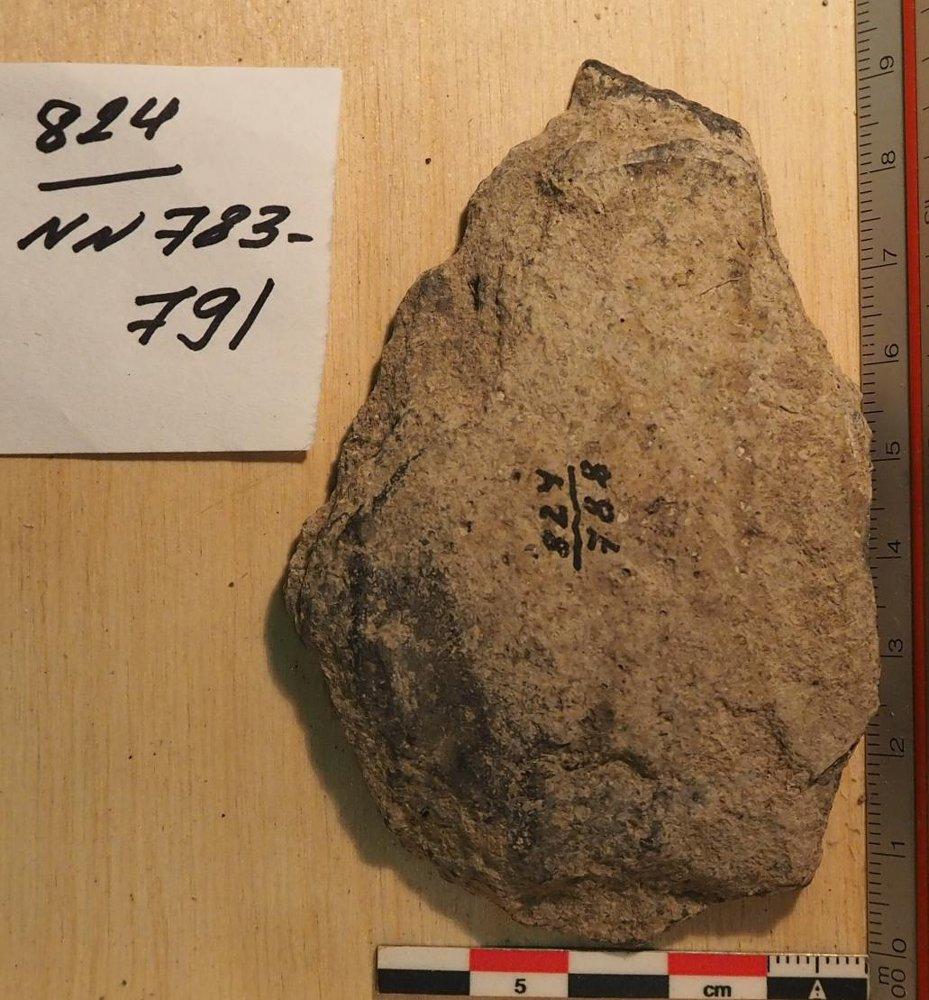 824
NN 783-
791
824
788
9
8
7
6
5
4
3
2
1
0
5
cm
A